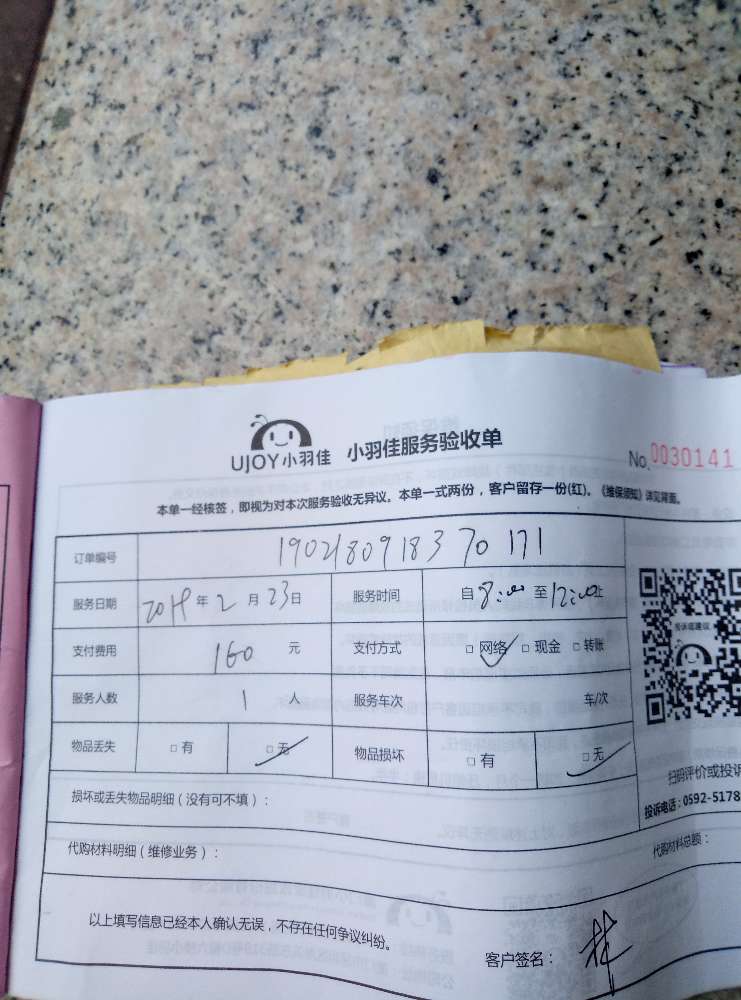 UJOY小羽佳 小羽佳服务验收单
No.0030141
本单一经核签，即视为对本次服务验收无异议。本单一式两份，客户留存一份(红)。《维保须知》详见背面。
订单编号 190218091837 70 171
服务日期 2019年2月23日 服务时间 自8:00至12:00止
支付费用 160元 支付方式 □网络 □现金 □转账
服务人数 1人 服务车次 车/次
物品丢失 □有 □无 物品损坏 □有 □无
投诉或建议
扫码评价或投诉
投诉电话：0592-5178
损坏或丢失物品明细（没有可不填）：
代购材料明细（维修业务）： 代购材料总额：
以上填写信息已经本人确认无误，不存在任何争议纠纷。
客户签名： 林